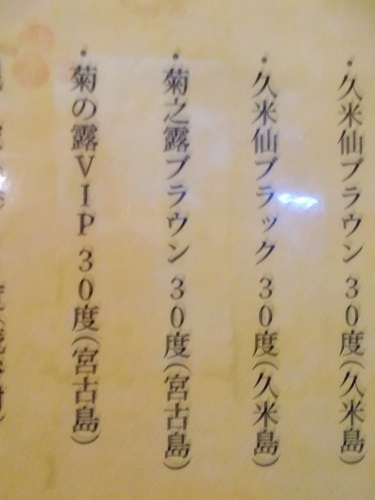 ・久米仙ブラウン 30度(久米島)
・久米仙ブラック 30度(久米島)
・菊之露ブラウン 30度(宮古島)
・菊の露VIP 30度(宮古島)